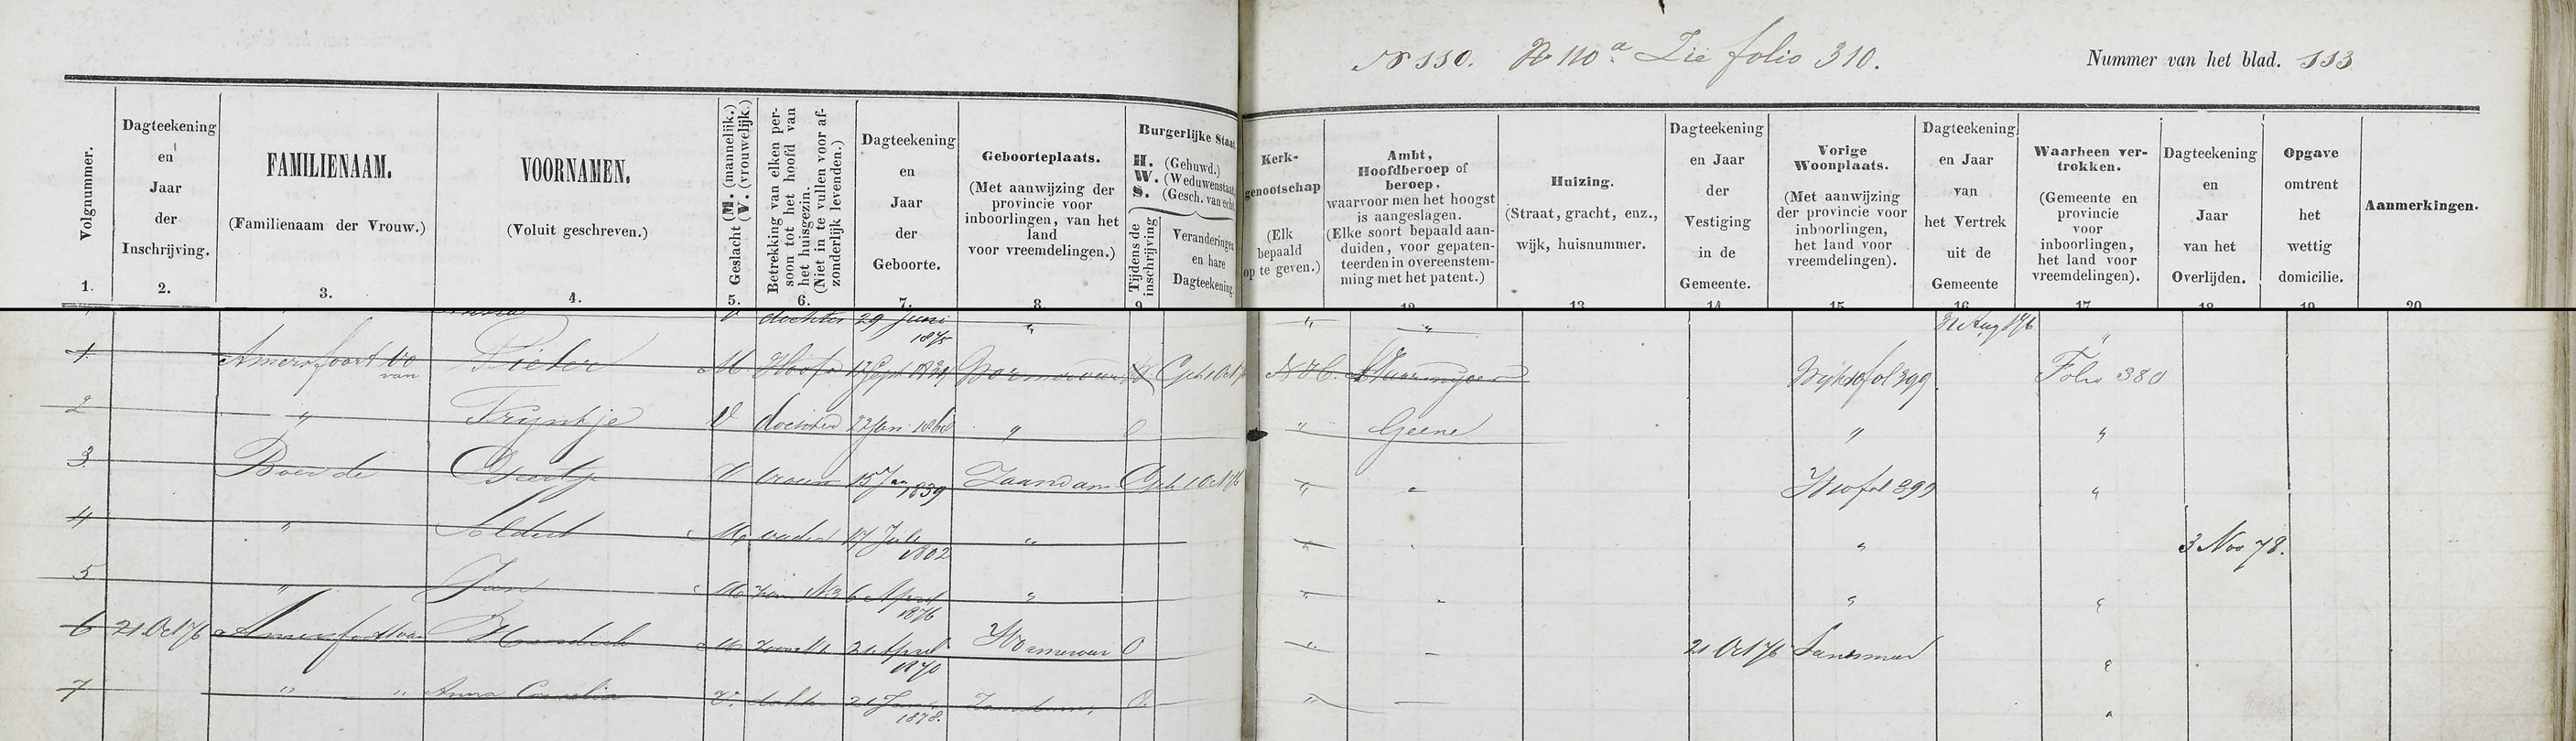 N 110. N 110a. Zie folio 310.
Nummer van het blad. 113
Volgnummer.
1.
Dagteekening
en
Jaar
der
Inschrijving.
2.
FAMILIENAAM.
(Familienaam der Vrouw.)
3.
VOORNAMEN.
(Voluit geschreven.)
4.
Geslacht (M. (mannelijk.)
(V. (vrouwelijk.)
5.
Betrekking van elken per-
soon tot het hoofd van
het huisgezin.
(Niet in te vullen voor af-
zonderlijk levenden.)
6.
Dagteekening
en
Jaar
der
Geboorte.
7.
Geboorteplaats.
(Met aanwijzing der
provincie voor
inboorlingen, van het
land
voor vreemdelingen.)
8.
Burgerlijke Staat
H. (Gehuwd.)
W. (Weduwenstaat,
S. (Gesch. van echt
Tijdens de
inschrijving
9.
Veranderingen
en hare
Dagteekening.
Kerk-
genootschap
(Elk
bepaald
op te geven.)
Ambt,
Hoofdberoep of
beroep,
waarvoor men het hoogst
is aangeslagen.
(Elke soort bepaald aan-
duiden, voor gepaten-
teerden in overeenstem-
ming met het patent.)
12
Huizing.
(Straat, gracht, enz.,
wijk, huisnummer.
13
Dagteekening
en Jaar
der
Vestiging
in de
Gemeente.
14
Vorige
Woonplaats.
(Met aanwijzing
der provincie voor
inboorlingen,
het land voor
vreemdelingen).
15
Dagteekening
en Jaar
van
het Vertrek
uit de
Gemeente
16
Waarheen ver-
trokken.
(Gemeente en
provincie
voor
inboorlingen,
het land voor
vreemdelingen).
17
Dagteekening
en
Jaar
van het
Overlijden.
18
Opgave
omtrent
het
wettig
domicilie.
19
Aanmerkingen.
20
V dochter 29 Juni 1875 " " " 31 Aug 1876 "
1 Amersfoort van Pieter M Hoofd Wormerveer N H fol 399 Folio 380
2 " Trijntje V dochter 22 Jan " O " Geene " "
3 Boer de Geertje V vrouw 15 Jan 1839 Zaandam Geh 1 Oct 76 " " fol 399 "
4 " Aldert M vader 17 Juli 1802 " " " " 3 Nov 78.
5 " Jan M zoon N3 6 April 1876 " " " " "
6 21 Oct 76 Amersfoort van Hendrik M zoon 21 April 1870 Wormerveer O " - 21 Oct 76 "
7 " " Anna Cornelia V. dochter 21 1878. Zaandam O. " - "